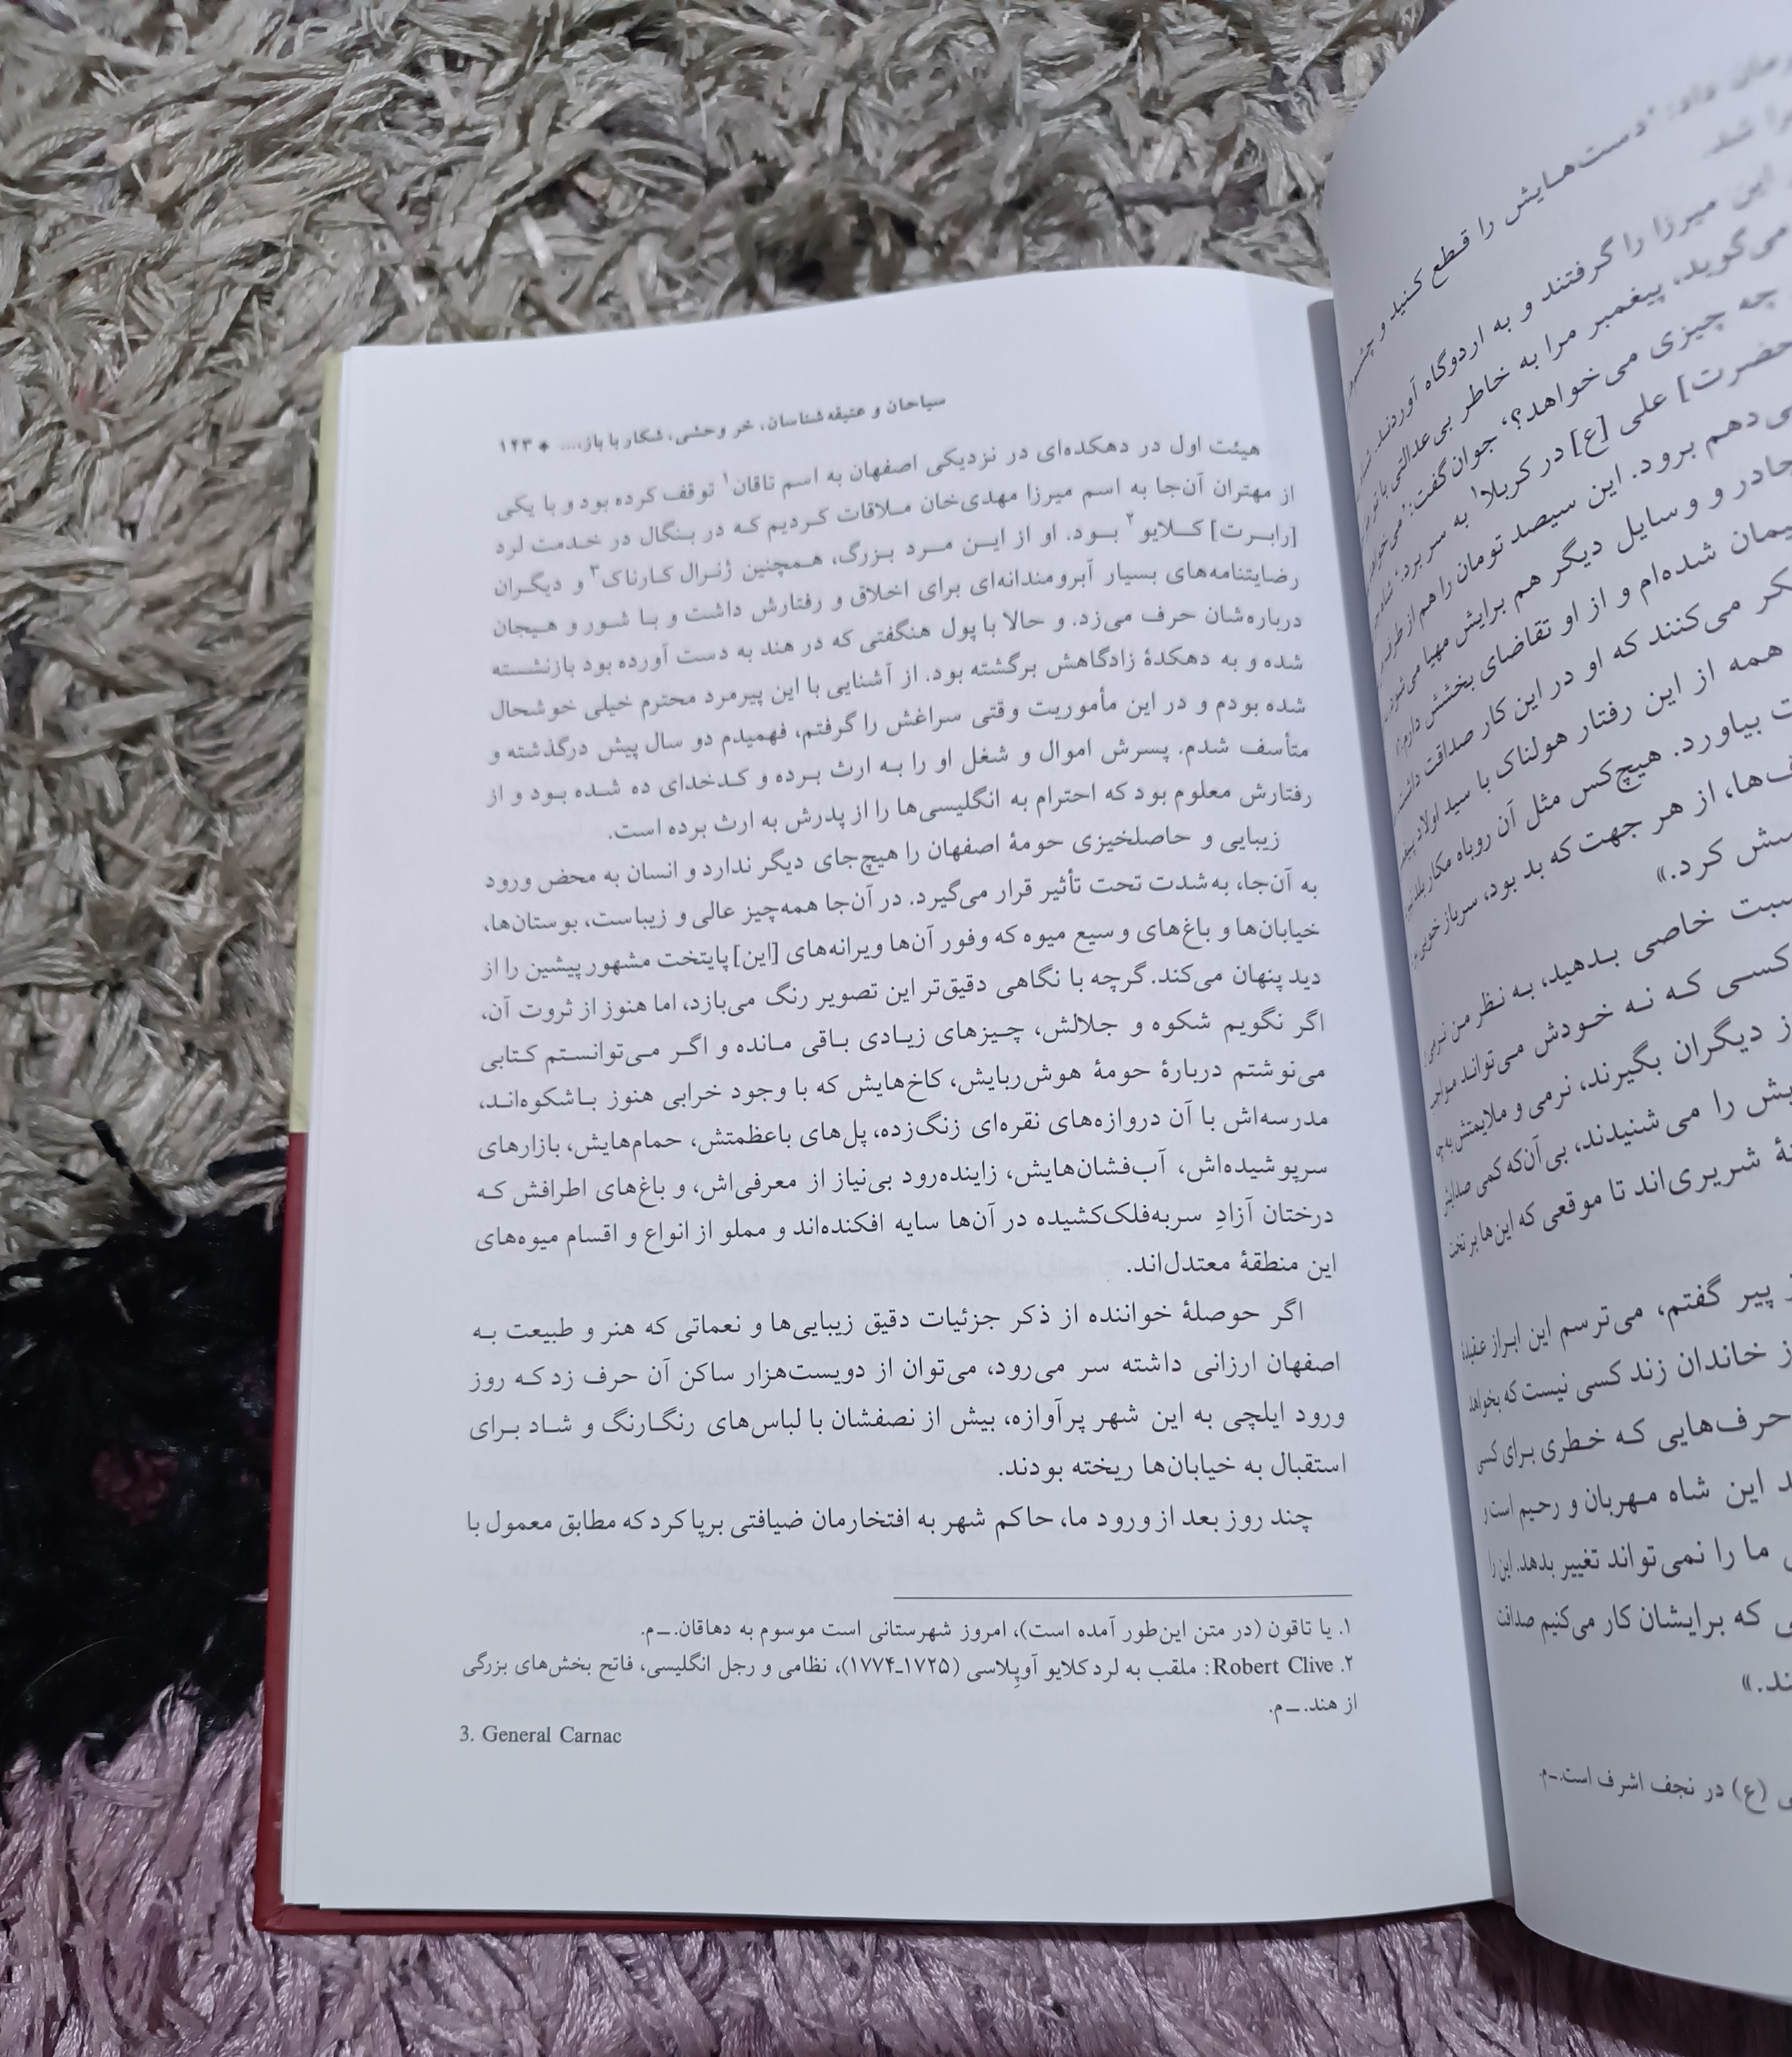 دست‌هایش را قطع کنید و
این میرزا را گرفتند و به اردوگاه آوردند.
می‌گوید، پیغمبر مرا به خاطر بی‌عدالتی با تو
چه چیزی می‌خواهد؟، جوان گفت:
حضرت] علی [ع] در کربلا۱ به سر برد؛
برود. این سیصد تومان را هم از طرف
چادر و وسایل دیگر هم برایش مهیا می‌شود.
شده‌ام و از او تقاضای بخشش دارم.
می‌کنند که او در این کار صداقت
همه از این رفتار هولناک با سید اولاد
بیاورد. هیچ‌کس مثل آن روباه مکار
از هر جهت که بد بود، سرباز خوبی
کرد.»
خاصی بدهید، به نظر من
کسی که نه خودش می‌تواند
از دیگران بگیرند، نرمی و ملایمتش به
را می‌شنیدند، بی‌آن‌که کمی صدایش
شریری‌اند تا موقعی که این‌ها بر تخت
پیر گفتم، می‌ترسم این ابراز عقیدهٔ
خاندان زند کسی نیست که بخواهد
حرف‌هایی که خطری برای کسی
این شاه مهربان و رحیم است و
ما را نمی‌تواند تغییر بدهد. این را
که برایشان کار می‌کنیم صداقت
(ع) در نجف اشرف است. ــ م.
سیاحان و عتیقه‌شناسان، خر وحشی، شکار با باز،... * ۱۲۳
هیئت اول در دهکده‌ای در نزدیکی اصفهان به اسم تاقان۱ توقف کرده بود و با یکی
از مهتران آن‌جا به اسم میرزا مهدی‌خان ملاقات کردیم که در بنگال در خدمت لرد
[رابرت] کلایو۲ بود. او از این مرد بزرگ، همچنین ژنرال کارناک۳ و دیگران
رضایتنامه‌های بسیار آبرومندانه‌ای برای اخلاق و رفتارش داشت و با شور و هیجان
درباره‌شان حرف می‌زد. و حالا با پول هنگفتی که در هند به دست آورده بود بازنشسته
شده و به دهکدهٔ زادگاهش برگشته بود. از آشنایی با این پیرمرد محترم خیلی خوشحال
شده بودم و در این مأموریت وقتی سراغش را گرفتم، فهمیدم دو سال پیش درگذشته و
متأسف شدم. پسرش اموال و شغل او را به ارث برده و کدخدای ده شده بود و از
رفتارش معلوم بود که احترام به انگلیسی‌ها را از پدرش به ارث برده است.
زیبایی و حاصلخیزی حومهٔ اصفهان را هیچ‌جای دیگر ندارد و انسان به محض ورود
به آن‌جا، به‌شدت تحت تأثیر قرار می‌گیرد. در آن‌جا همه‌چیز عالی و زیباست، بوستان‌ها،
خیابان‌ها و باغ‌های وسیع میوه که وفور آن‌ها ویرانه‌های [این] پایتخت مشهور پیشین را از
دید پنهان می‌کند. گرچه با نگاهی دقیق‌تر این تصویر رنگ می‌بازد، اما هنوز از ثروت آن،
اگر نگویم شکوه و جلالش، چیزهای زیادی باقی مانده و اگر می‌توانستم کتابی
می‌نوشتم دربارهٔ حومهٔ هوش‌ربایش، کاخ‌هایش که با وجود خرابی هنوز باشکوه‌اند،
مدرسه‌اش با آن دروازه‌های نقره‌ای زنگ‌زده، پل‌های باعظمتش، حمام‌هایش، بازارهای
سرپوشیده‌اش، آب‌فشان‌هایش، زاینده‌رود بی‌نیاز از معرفی‌اش، و باغ‌های اطرافش که
درختان آزادِ سربه‌فلک‌کشیده در آن‌ها سایه افکنده‌اند و مملو از انواع و اقسام میوه‌های
این منطقهٔ معتدل‌اند.
اگر حوصلهٔ خواننده از ذکر جزئیات دقیق زیبایی‌ها و نعماتی که هنر و طبیعت به
اصفهان ارزانی داشته سر می‌رود، می‌توان از دویست‌هزار ساکن آن حرف زد که روز
ورود ایلچی به این شهر پرآوازه، بیش از نصفشان با لباس‌های رنگارنگ و شاد برای
استقبال به خیابان‌ها ریخته بودند.
چند روز بعد از ورود ما، حاکم شهر به افتخارمان ضیافتی برپا کرد که مطابق معمول با
۱. یا تاقون (در متن این‌طور آمده است)، امروز شهرستانی است موسوم به دهاقان. ــ م.
۲. Robert Clive: ملقب به لرد کلایو آوپِلاسی (۱۷۲۵ـ۱۷۷۴)، نظامی و رجل انگلیسی، فاتح بخش‌های بزرگی
از هند. ــ م.
3. General Carnac